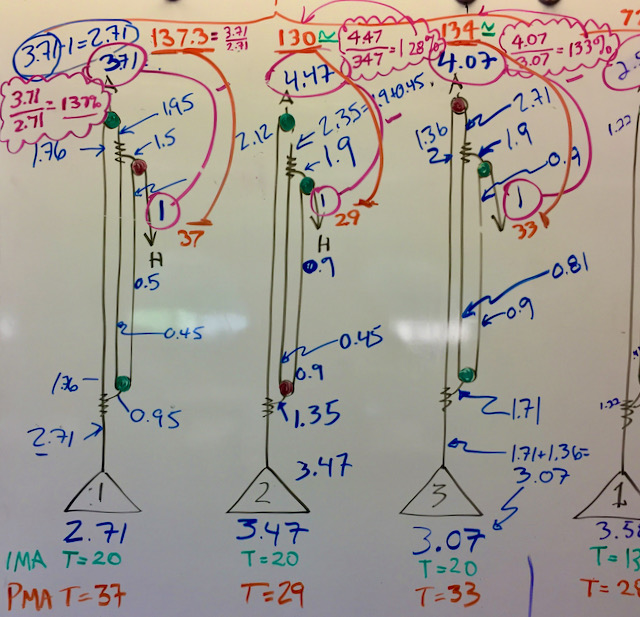 3.71-1=2.71
137.3 = 3.71/2.71
3.71
3.71/2.71 = 137%
A
1.95
1.5
1.76
1
37
H
0.5
0.45
1.76
0.95
2.71
1
2.71
IMA T=20
PMA T=37
130 ≅
4.47/347 = 128%
4.47
A
2.35=1.9+0.45
2.12
1.9
1
29
H
0.9
0.45
0.9
1.35
3.47
2
3.47
T=20
T=29
134 ≅
4.07/3.07 = 133%
4.07
A
2.71
1.36
2
1.9
0.9
1
33
0.81
0.9
1.71
1.71+1.36=
3.07
3
3.07
T=20
T=33
1.22
1.22
1